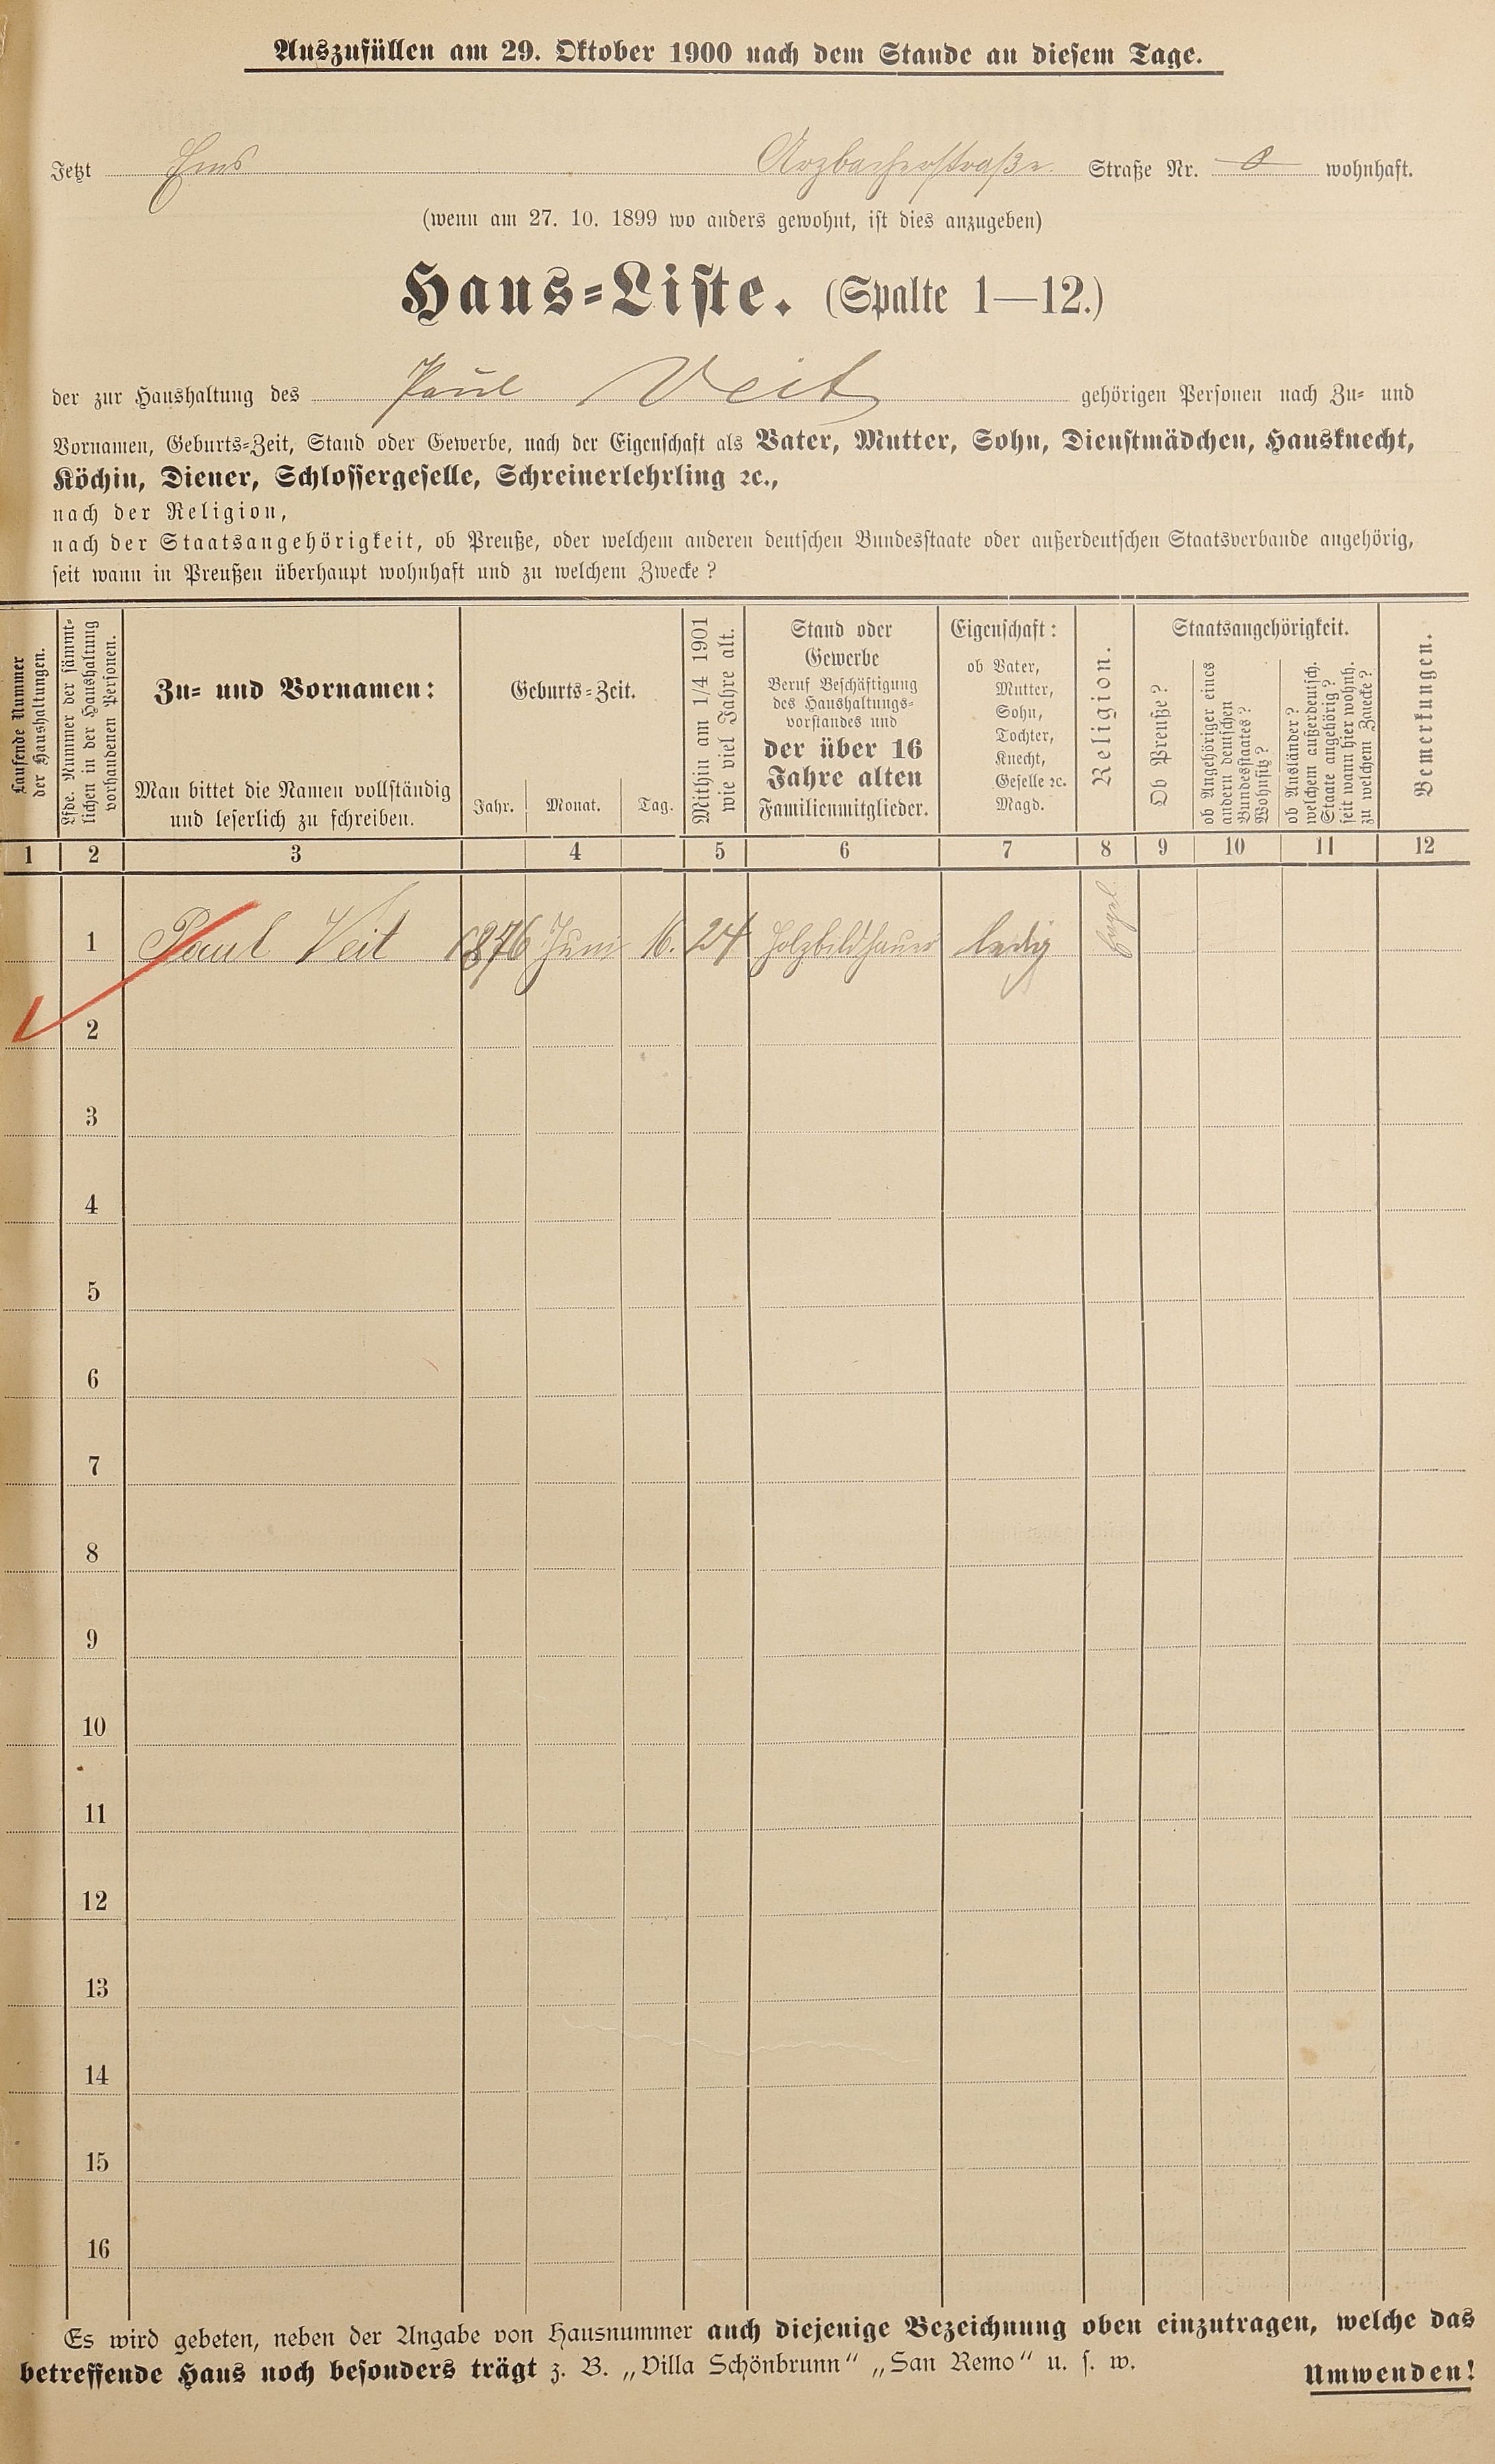 Auszufüllen am 29. Oktober 1900 nach dem Stande an diesem Tage.
Jetzt Ems Arzbacherstraße Straße Nr. 8 wohnhaft.
(wenn am 27. 10. 1899 wo anders gewohnt, ist dies anzugeben)
Haus-Liste. (Spalte 1—12.)
der zur Haushaltung des Paul Veit gehörigen Personen nach Zu- und
Vornamen, Geburts-Zeit, Stand oder Gewerbe, nach der Eigenschaft als Vater, Mutter, Sohn, Dienstmädchen, Hausknecht,
Köchin, Diener, Schlossergeselle, Schreinerlehrling ꝛc.,
nach der Religion,
nach der Staatsangehörigkeit, ob Preuße, oder welchem anderen deutschen Bundesstaate oder außerdeutschen Staatsverbande angehörig,
seit wann in Preußen überhaupt wohnhaft und zu welchem Zwecke?
Laufende Nummer
der Haushaltungen.
Lfde. Nummer der sämmt-
lichen in der Haushaltung
vorhandenen Personen.
Zu- und Vornamen:
Man bittet die Namen vollständig
und leserlich zu schreiben.
Geburts-Zeit.
Jahr. Monat. Tag.
Mithin am 1/4 1901
wie viel Jahre alt.
Stand oder
Gewerbe
Beruf Beschäftigung
des Haushaltungs-
vorstandes und
der über 16
Jahre alten
Familienmitglieder.
Eigenschaft:
ob Vater,
Mutter,
Sohn,
Tochter,
Knecht,
Geselle ꝛc.
Magd.
Religion.
Staatsangehörigkeit.
Ob Preuße?
ob Angehöriger eines
andern deutschen
Bundesstaates?
Wohnsitz?
ob Ausländer?
welchem außerdeutsch.
Staate angehörig?
seit wann hier wohnh.
zu welchem Zwecke?
Bemerkungen.
1 2 3 4 5 6 7 8 9 10 11 12
1 Paul Veit 1876 Juni 16. 24 Holzbildhauer ledig
2
3
4
5
6
7
8
9
10
11
12
13
14
15
16
Es wird gebeten, neben der Angabe von Hausnummer auch diejenige Bezeichnung oben einzutragen, welche das
betreffende Haus noch besonders trägt z. B. „Villa Schönbrunn“ „San Remo“ u. s. w.
Umwenden!